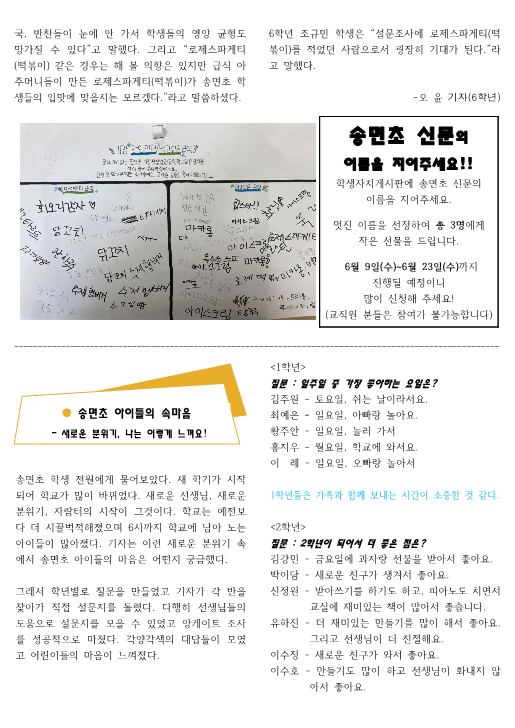 국, 반찬들이 눈에 안 가서 학생들의 영양 균형도
망가질 수 있다”고 말했다. 그리고 “로제스파게티
(떡볶이) 같은 경우는 해 볼 의향은 있지만 급식 아
주머니들이 만든 로제스파게티(떡볶이)가 송면초 학
생들의 입맛에 맞을지는 모르겠다.”라고 말씀하셨다.
6학년 조규민 학생은 “설문조사에 로제스파게티(떡
볶이)를 적었던 사람으로서 굉장히 기대가 된다.”라
고 말했다.
-오 윤 기자(6학년)
희오리감자
닭꼬치
닭꼬치
마카롱
아이스크림
송면초 신문의
이름을 지어주세요!!
학생자치게시판에 송면초 신문의
이름을 지어주세요.
멋진 이름을 선정하여 총 3명에게
작은 선물을 드립니다.
6월 9일(수)~6월 23일(수)까지
진행될 예정이니
많이 신청해 주세요!
(교직원 분들은 참여가 불가능합니다)
● 송면초 아이들의 속마음
- 새로운 분위기, 나는 이렇게 느껴요!
송면초 학생 전원에게 물어보았다. 새 학기가 시작
되어 학교가 많이 바뀌었다. 새로운 선생님, 새로운
분위기, 자람터의 시작이 그것이다. 학교는 예전보
다 더 시끌벅적해졌으며 6시까지 학교에 남아 노는
아이들이 많아졌다. 기자는 이런 새로운 분위기 속
에서 송면초 아이들의 마음은 어떤지 궁금했다.
그래서 학년별로 질문을 만들었고 기자가 각 반을
찾아가 직접 설문지를 돌렸다. 다행히 선생님들의
도움으로 설문지를 모을 수 있었고 앙케이트 조사
를 성공적으로 마쳤다. 각양각색의 대답들이 모였
고 어린이들의 마음이 느껴졌다.
<1학년>
질문 : 일주일 중 가장 좋아하는 요일은?
김주원 - 토요일, 쉬는 날이라서요.
최예은 - 일요일, 아빠랑 놀아요.
황주안 - 일요일, 놀러 가서
홍지우 - 월요일, 학교에 와서요.
이 레 - 일요일, 오빠랑 놀아서
1학년들은 가족과 함께 보내는 시간이 소중한 것 같다.
<2학년>
질문 : 2학년이 되어서 더 좋은 점은?
김강민 - 금요일에 과자랑 선물을 받아서 좋아요.
박이담 - 새로운 친구가 생겨서 좋아요.
신정원 - 받아쓰기를 하기도 하고, 피아노도 치면서
교실에 재미있는 책이 많아서 좋습니다.
유하진 - 더 재미있는 만들기를 많이 해서 좋아요.
그리고 선생님이 더 친절해요.
이수정 - 새로운 친구가 와서 좋아요.
이수호 - 만들기도 많이 하고 선생님이 화내지 않
아서 좋아요.